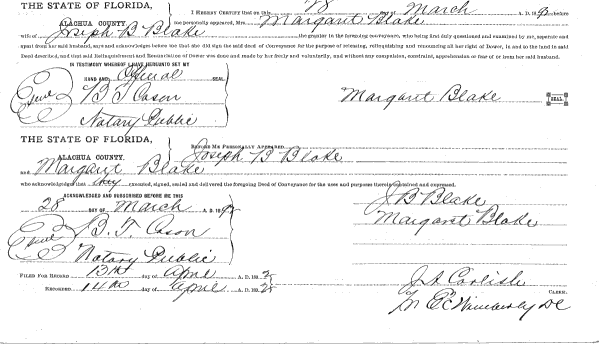 THE STATE OF FLORIDA,
ALACHUA COUNTY.
I HEREBY CERTIFY that on this 28 day of March A. D. 189 before
me personally appeared, Mrs. Margaret Blake
wife of Joseph B Blake the grantor in the foregoing conveyance, who being first duly questioned and examined by me, separate and
apart from her said husband, say and acknowledges before me that she did sign the said deed of Conveyance for the purpose of releasing, relinquishing and renouncing all her right of Dower, in and to the land in said
Deed described, and that said Relinquishment and Renunciation of Dower was done and made by her freely and voluntarily, and without any compulsion, constraint, apprehension or fear of or from her said husband.
IN TESTIMONY WHEREOF I HAVE HEREUNTO SET MY
HAND AND Official SEAL
Seal
B T Cason
Notary Public
Margaret Blake SEAL
THE STATE OF FLORIDA,
ALACHUA COUNTY.
BEFORE ME PERSONALLY APPEARED Joseph B Blake
and Margaret Blake
who acknowledges that they executed, signed, sealed and delivered the foregoing Deed of Conveyance for the uses and purposes therein contained and expressed.
ACKNOWLEDGED AND SUBSCRIBED BEFORE ME THIS
28 DAY OF March A. D. 189
J B Blake
Margaret Blake
Seal
B. T. Cason
Notary Public
FILED FOR RECORD 13th day of April A. D. 189
RECORDED 14th day of April A. D. 189
J A Carlisle CLERK.
Wimberly DC